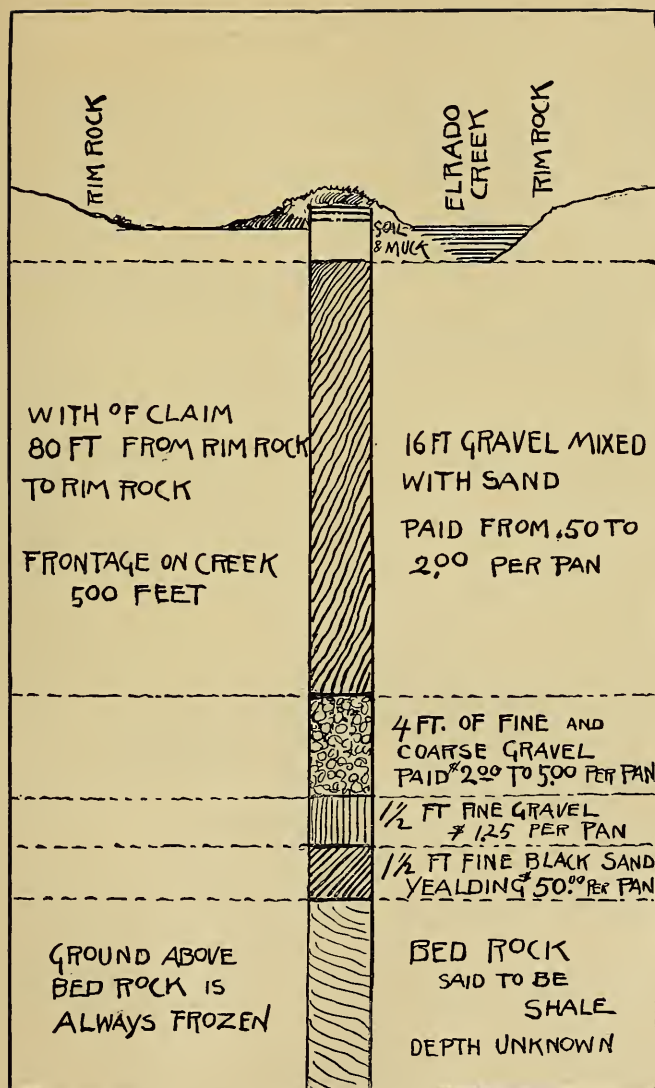 RIM ROCK
ELRADO
CREEK
RIM ROCK
SOIL
& MUCK
WITH OF CLAIM
80 FT FROM RIM ROCK
TO RIM ROCK
FRONTAGE ON CREEK
500 FEET
16 FT GRAVEL MIXED
WITH SAND
PAID FROM .50 TO
2.00 PER PAN
4 FT. OF FINE AND
COARSE GRAVEL
PAID $2.00 TO 5.00 PER PAN
1/2 FT FINE GRAVEL
$ 1.25 PER PAN
1 1/2 FT FINE BLACK SAND
YEALDING $50.00 PER PAN
GROUND ABOVE
BED ROCK IS
ALWAYS FROZEN
BED ROCK
SAID TO BE
SHALE
DEPTH UNKNOWN